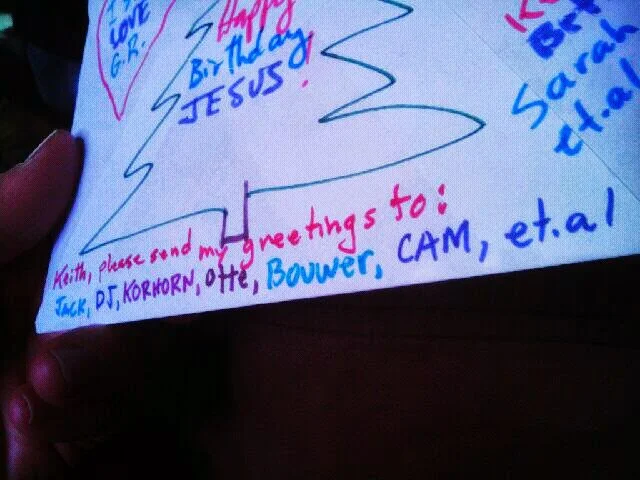 LOVE
G.R.
Happy
Birthday
JESUS!
Bet
Sarah
et.al
Keith, please send my greetings to:
JACK, DJ, KORHORN, Otte, Bouwer, CAM, et.al